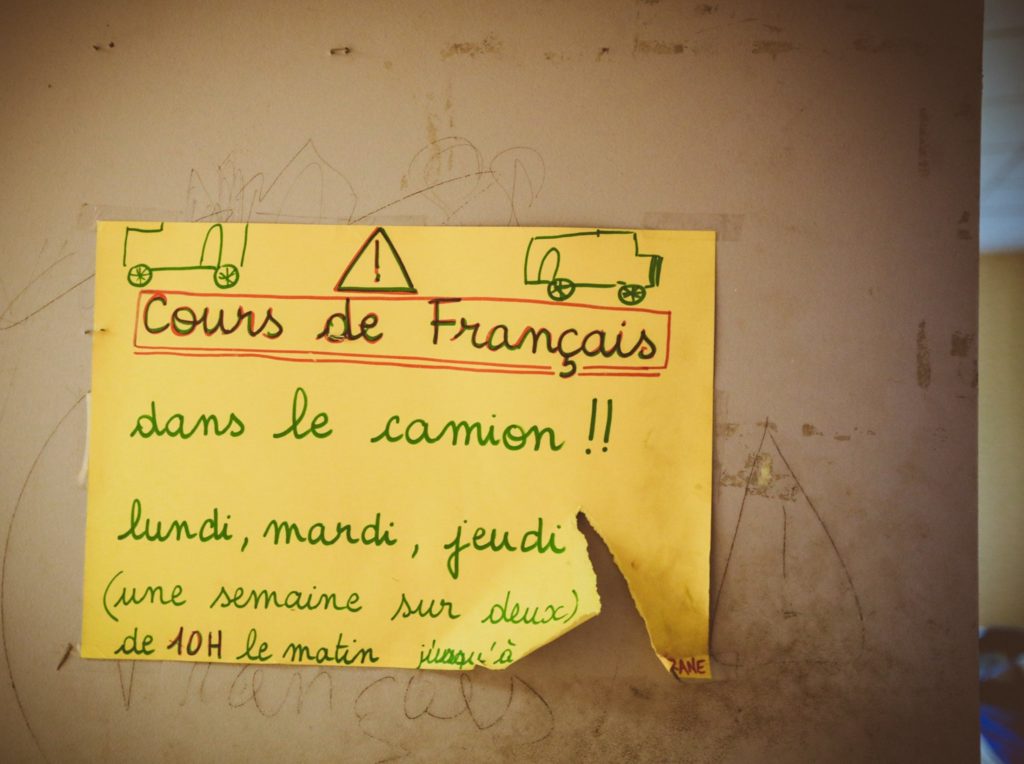 !
Cours de Français
dans le camion !!
lundi, mardi, jeudi
(une semaine sur deux)
de 10H le matin jusqu'à
Français